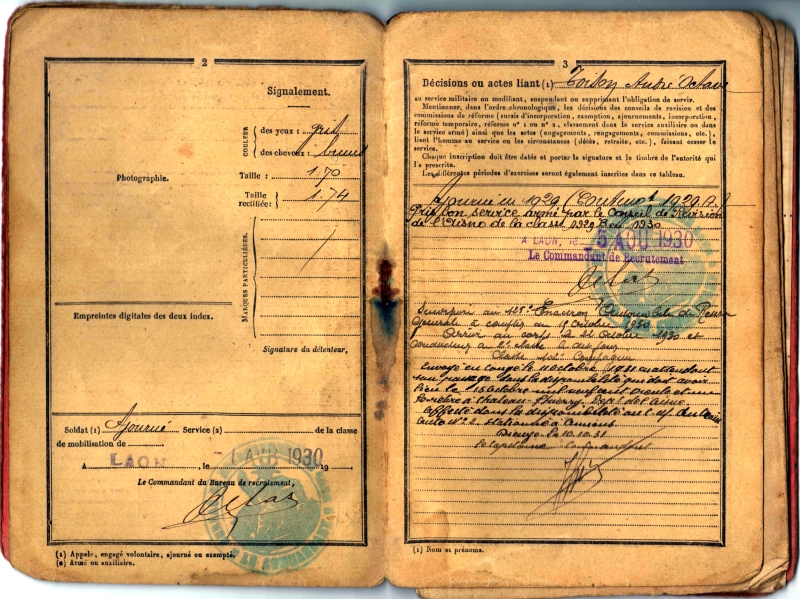 2
Signalement.
COULEUR
des yeux : gris
des cheveux : bruns
Photographie.
Taille : 1.70
Taille rectifiée : 1.74
MARQUES PARTICULIÈRES.
Empreintes digitales des deux index.
Signature du détenteur,
Soldat (1) Ajourné Service (2) de la classe
de mobilisation de
A LAON, le 1 AVR 1930 19
Le Commandant du Bureau de recrutement,
(1) Appelé, engagé volontaire, ajourné ou exempté.
(2) Armé ou auxiliaire.
3
Décisions ou actes liant (1) André Octave
au service militaire ou modifiant, suspendant ou supprimant l'obligation de servir.
Mentionner, dans l'ordre chronologique, les décisions des conseils de revision et des
commissions de réforme (sursis d'incorporation, exemption, ajournements, incorporation,
réforme temporaire, réforme n° 1 ou n° 2, classement dans le service auxiliaire ou dans
le service armé) ainsi que les actes (engagements, rengagements, commissions, etc.),
liant l'homme au service ou les circonstances (décès, retraite, etc.), faisant cesser le
service.
Chaque inscription doit être datée et porter la signature et le timbre de l'autorité qui
l'a prescrite.
Les différentes périodes d'exercices seront également inscrites dans ce tableau.
Ajourné en 1929
Pris bon service armé par le Conseil de Révision
de l'Aisne de la classe 1929 en 1930
A LAON, le 5 AOU 1930
Le Commandant de Recrutement
à compter du octobre 1930
Arrivé au corps le octobre 1930 et
conducteur de 2e classe
Envoyé en congé le octobre 1931 en attendant
son passage dans la disponibilité qui doit avoir
lieu le 15 octobre mil neuf cent trente et un
Se retire à Chateau-Thierry Dept de l'Aisne
Affecté dans la disponibilité au
stationné à Amiens
le 10.10.31
Le Capitaine Commandant
(1) Nom et prénoms.